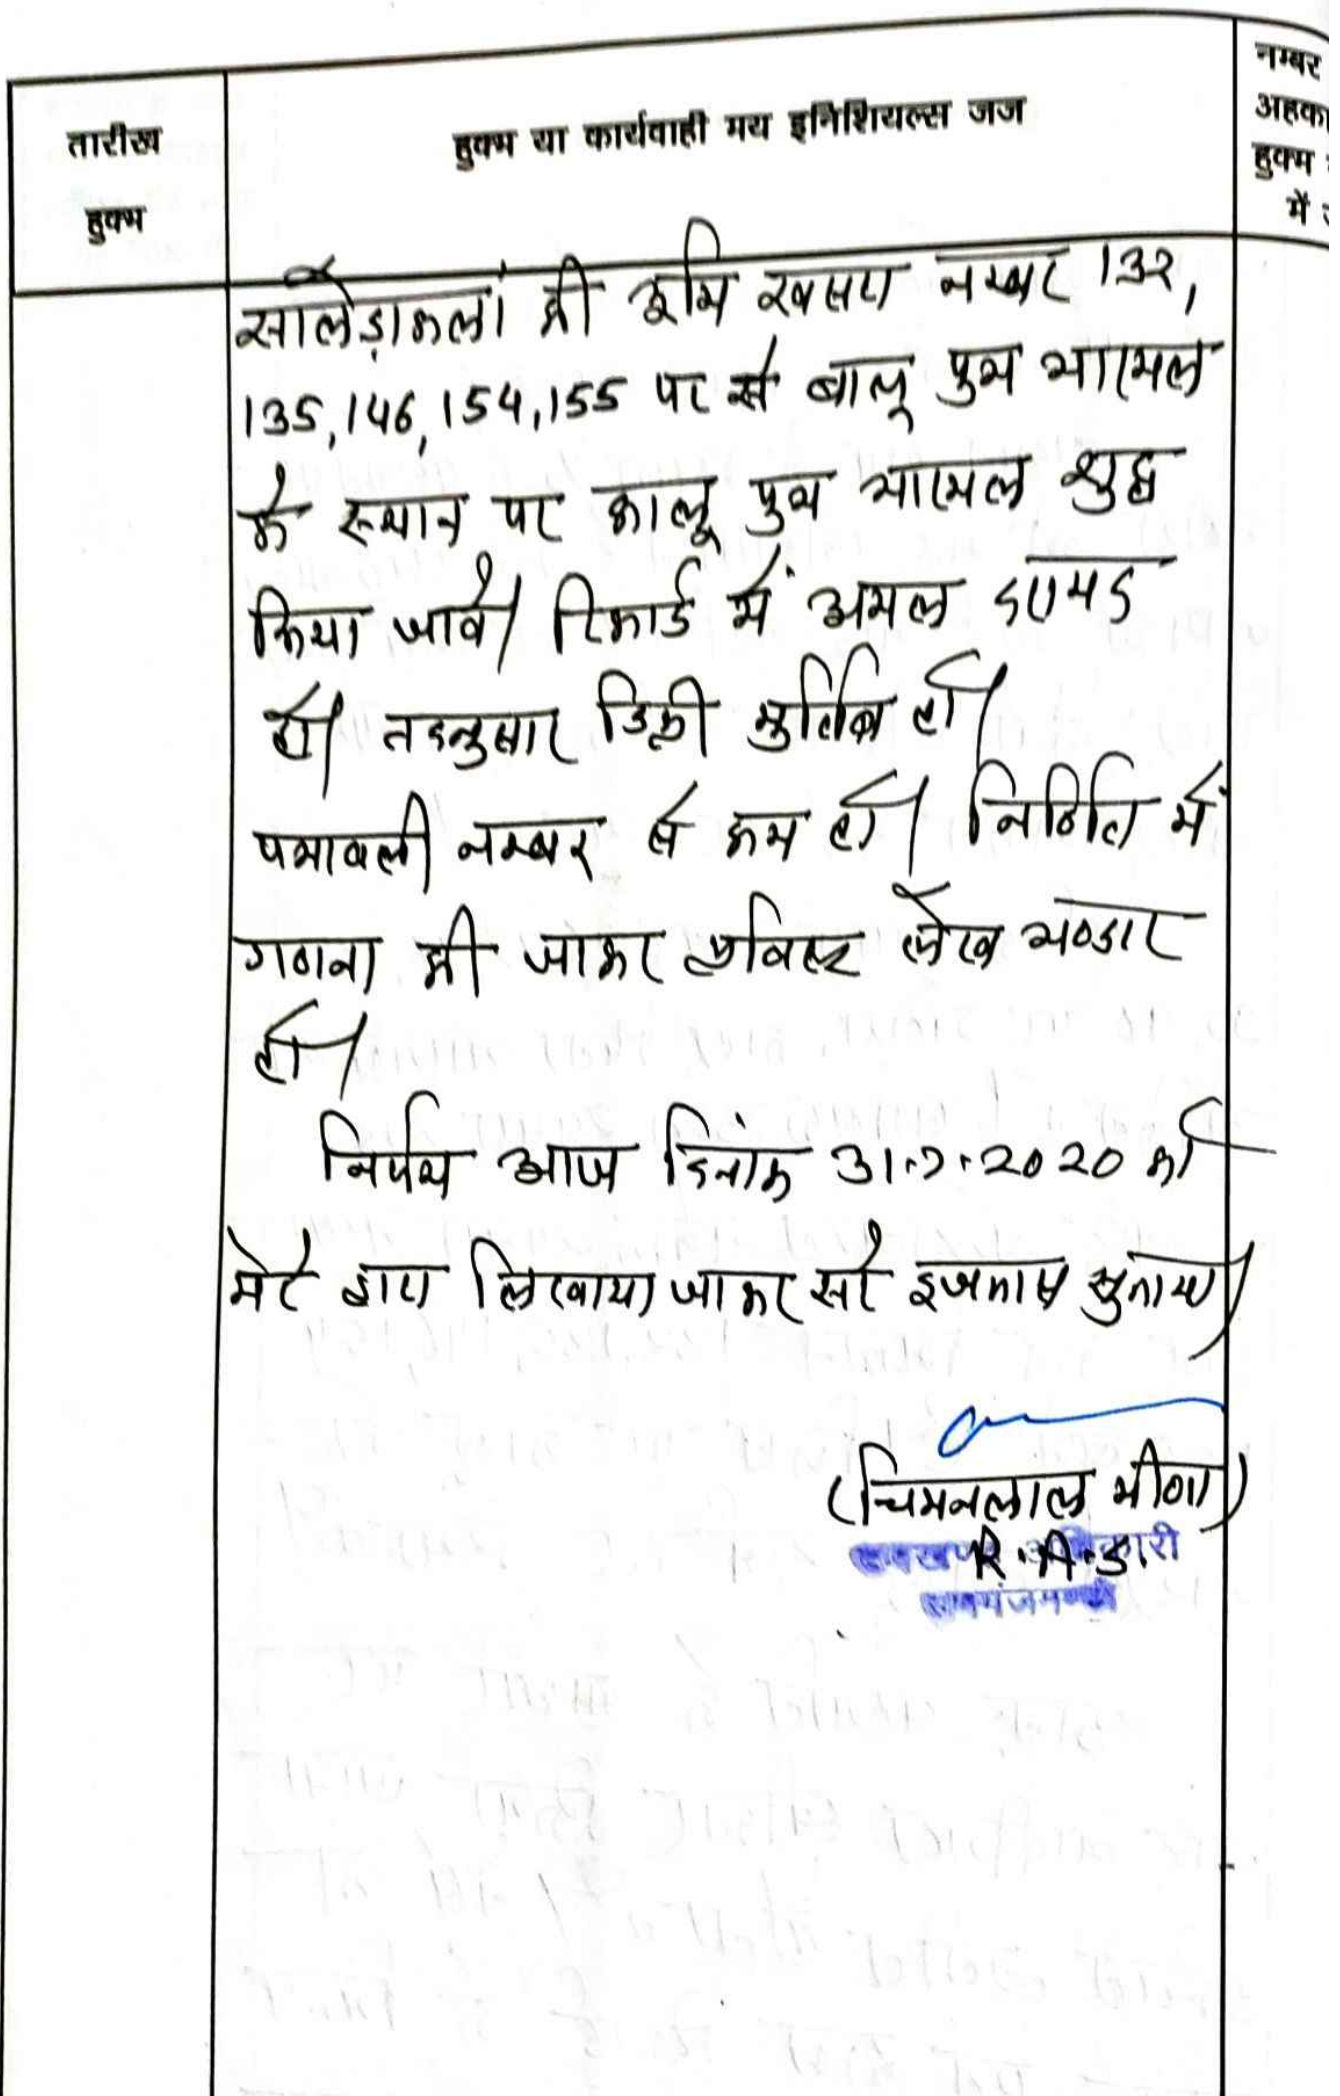 तारीख
हुक्म
हुक्म या कार्यवाही मय इनिशियल्स जज
नम्बर
अहका
हुक्म
में
सालेड़ाकलां की भूमि खसरा नम्बर 132,
135, 146, 154, 155 पर से बालू पुत्र भारमल
के स्थान पर कालू पुत्र भारमल शुद्ध
किया जावे। रिकार्ड में अमल दरामद
हो। तदनुसार डिक्री मुर्तिब हो।
पत्रावली नम्बर से कम हो। निर्णित में
गणना की जाकर प्रविष्ट लेख भण्डार
हो।
निर्णय आज दिनांक 31.7.2020 को
मेरे द्वारा लिखाया जाकर सरे इजलास सुनाया।
(चिमनलाल मीणा)
R.A.S.
उपखण्ड अधिकारी